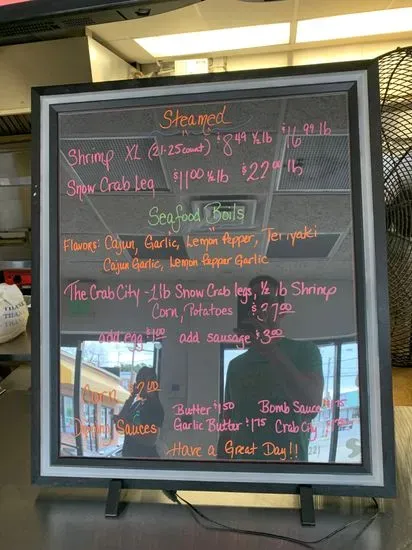 Steamed
Shrimp XL (21-25 count) $8.49 ½ lb $16.99 lb
Snow Crab Leg $11.00 ½ lb $22.00 lb
Seafood Boils
Flavors: Cajun, Garlic, Lemon Pepper, Teriyaki
Cajun Garlic, Lemon Pepper Garlic
The Crab City - 1 lb Snow Crab legs, ½ lb Shrimp
Corn, Potatoes $37.00
add egg $1.00 add sausage $3.00
Corn $2.00
Dipping Sauces
Butter $1.50 Bomb Sauce $1.75
Garlic Butter $1.75 Crab City
Have a Great Day!!
THA
THAN